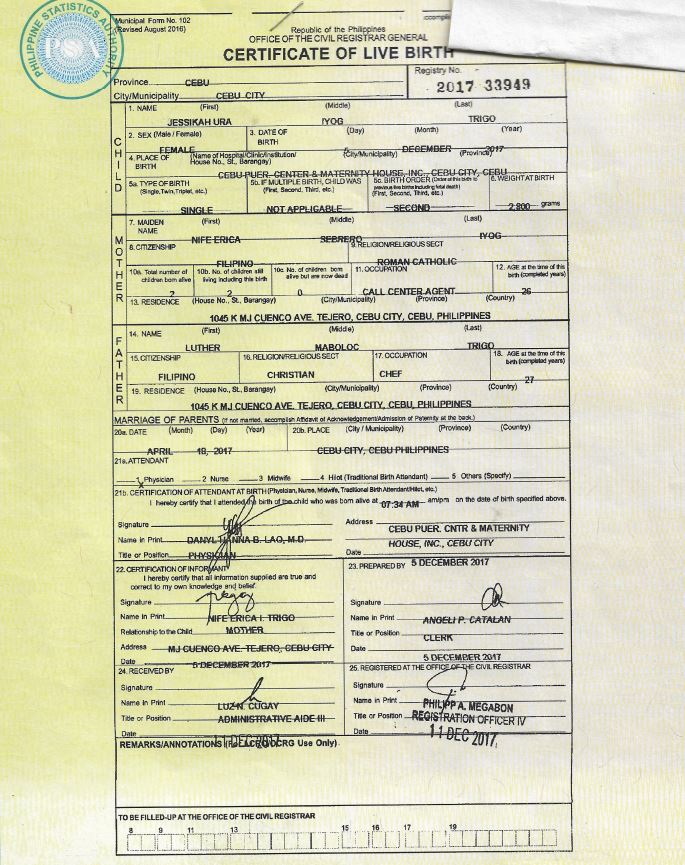 PHILIPPINE STATISTICS AUTHORITY
PSA
Municipal Form No. 102
(Revised August 2016)
Republic of the Philippines
OFFICE OF THE CIVIL REGISTRAR GENERAL
CERTIFICATE OF LIVE BIRTH
Province CEBU
City/Municipality CEBU CITY
Registry No.
2017 33949
CHILD
1. NAME (First) (Middle) (Last)
JESSIKAH URA IYOG TRIGO
2. SEX (Male / Female) 3. DATE OF BIRTH (Day) (Month) (Year)
FEMALE 5 DECEMBER 2017
4. PLACE OF BIRTH (Name of Hospital/Clinic/Institution/ House No., St., Barangay) (City/Municipality) (Province)
CEBU PUER. CENTER & MATERNITY HOUSE, INC., CEBU CITY, CEBU
5a. TYPE OF BIRTH (Single, Twin, Triplet, etc.) 5b. IF MULTIPLE BIRTH, CHILD WAS (First, Second, Third, etc.) 5c. BIRTH ORDER (Order of this birth to previous live births including fetal death) (First, Second, Third, etc.) 6. WEIGHT AT BIRTH
SINGLE NOT APPLICABLE SECOND 2,800 grams
MOTHER
7. MAIDEN NAME (First) (Middle) (Last)
NIFE ERICA SEBRERO IYOG
8. CITIZENSHIP 9. RELIGION/RELIGIOUS SECT
FILIPINO ROMAN CATHOLIC
10a. Total number of children born alive 10b. No. of children still living including this birth 10c. No. of children born alive but are now dead 11. OCCUPATION 12. AGE at the time of this birth (completed years)
2 2 0 CALL CENTER AGENT 26
13. RESIDENCE (House No., St., Barangay) (City/Municipality) (Province) (Country)
1045 K MJ CUENCO AVE. TEJERO, CEBU CITY, CEBU, PHILIPPINES
FATHER
14. NAME (First) (Middle) (Last)
LUTHER MABOLOC TRIGO
15. CITIZENSHIP 16. RELIGION/RELIGIOUS SECT 17. OCCUPATION 18. AGE at the time of this birth (completed years)
FILIPINO CHRISTIAN CHEF 27
19. RESIDENCE (House No., St., Barangay) (City/Municipality) (Province) (Country)
1045 K MJ CUENCO AVE. TEJERO, CEBU CITY, CEBU, PHILIPPINES
MARRIAGE OF PARENTS (If not married, accomplish Affidavit of Acknowledgement/Admission of Paternity at the back.)
20a. DATE (Month) (Day) (Year) 20b. PLACE (City / Municipality) (Province) (Country)
APRIL 18, 2017 CEBU CITY, CEBU PHILIPPINES
21a. ATTENDANT
X 1 Physician 2 Nurse 3 Midwife 4 Hilot (Traditional Birth Attendant) 5 Others (Specify)
21b. CERTIFICATION OF ATTENDANT AT BIRTH (Physician, Nurse, Midwife, Traditional Birth Attendant/Hilot, etc.)
I hereby certify that I attended the birth of the child who was born alive at 07:34 AM am/pm on the date of birth specified above.
Signature
Name in Print
Title or Position PHYSICIAN
Address CEBU PUER. CNTR & MATERNITY
HOUSE, INC., CEBU CITY
Date 5 DECEMBER 2017
22. CERTIFICATION OF INFORMANT
I hereby certify that all information supplied are true and
correct to my own knowledge and belief.
Signature
Name in Print NIFE ERICA I. TRIGO
Relationship to the Child MOTHER
Address MJ CUENCO AVE. TEJERO, CEBU CITY
Date 5 DECEMBER 2017
23. PREPARED BY
Signature
Name in Print ANGELI P. CATALAN
Title or Position CLERK
Date 5 DECEMBER 2017
24. RECEIVED BY
Signature
Name in Print LUZ N. CUGAY
Title or Position ADMINISTRATIVE AIDE III
Date 11 DEC 2017
25. REGISTERED AT THE OFFICE OF THE CIVIL REGISTRAR
Signature
Name in Print PHILIPP A. MEGABON
Title or Position REGISTRATION OFFICER IV
Date 11 DEC 2017
REMARKS/ANNOTATIONS (For LCRO/OCRG Use Only)
TO BE FILLED-UP AT THE OFFICE OF THE CIVIL REGISTRAR
8 9 11 13 15 16 17 19